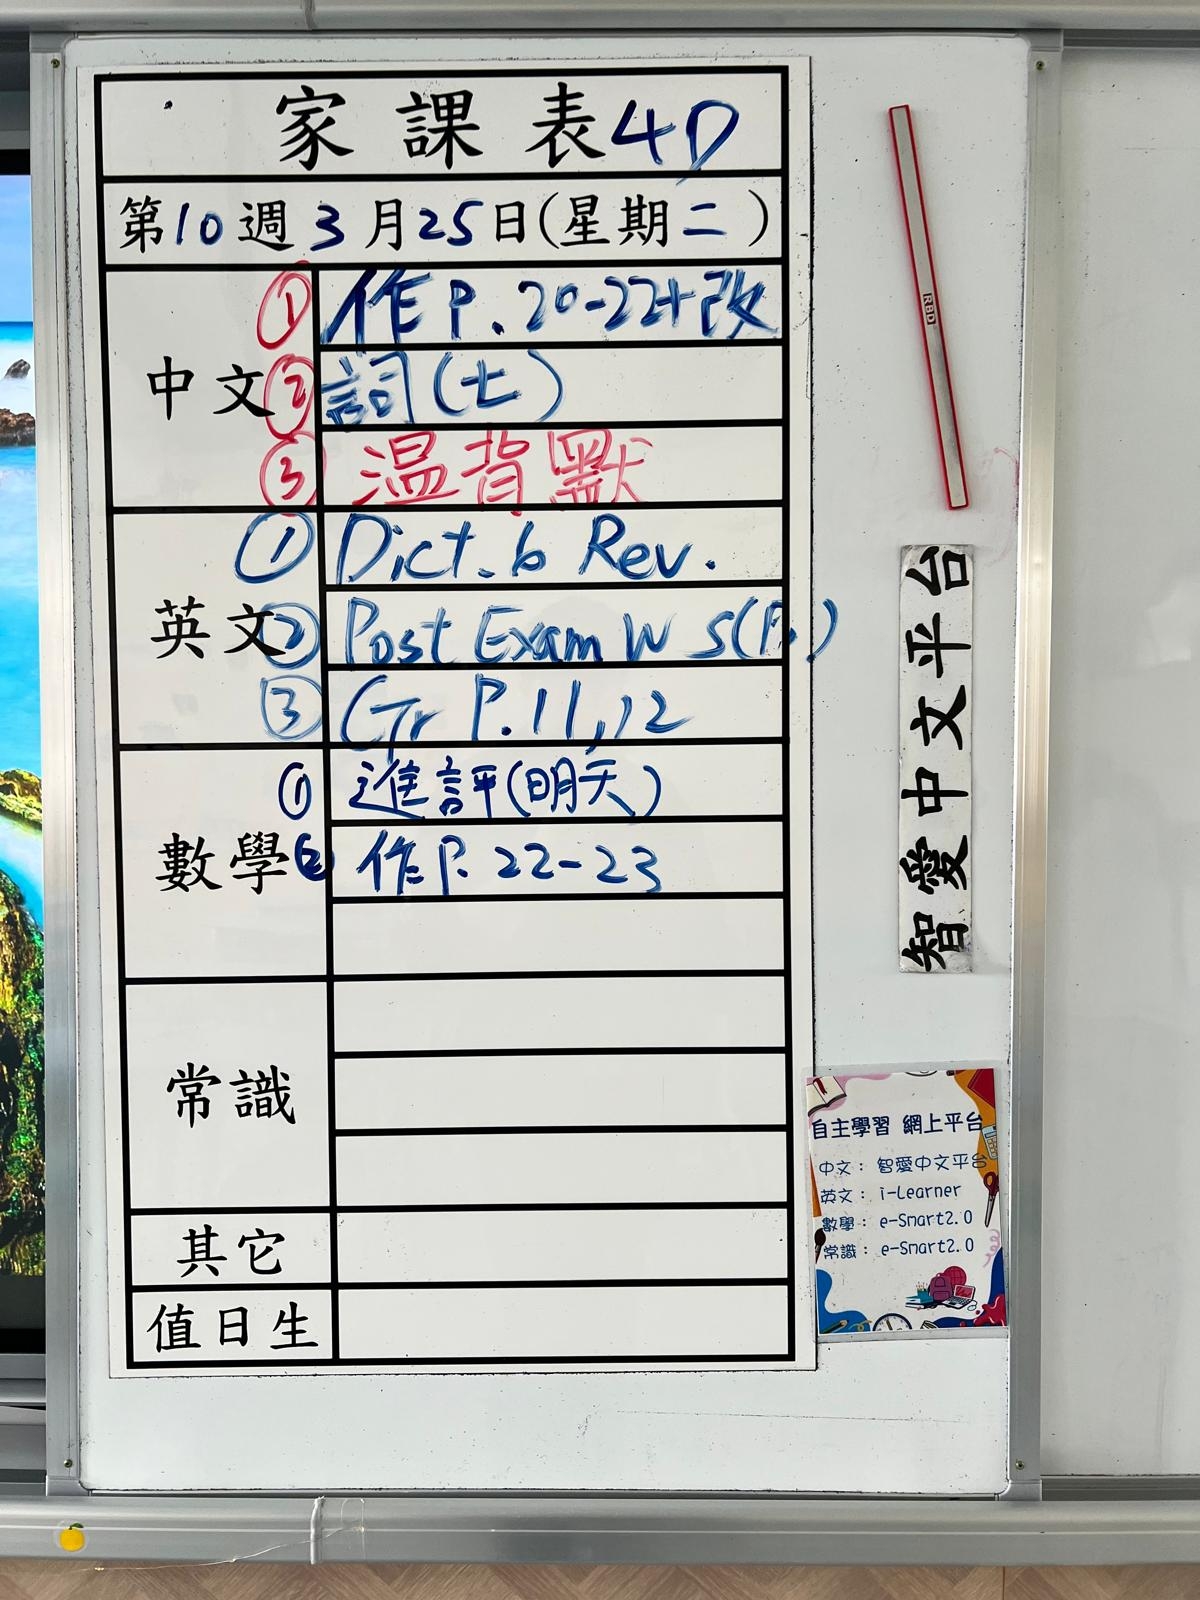 家課表4D
第10週3月25日(星期二)
中文
① 作P.20-22+改
② 詞(七)
③ 温背默
英文
① Dict.6 Rev.
② Post Exam WS(P.)
③ Gr P.11,12
數學
① 進評(明天)
② 作P.22-23
常識
其它
值日生
RBD
智愛中文平台
自主學習 網上平台
中文：智愛中文平台
英文：i-Learner
數學：e-Smart2.0
常識：e-Smart2.0